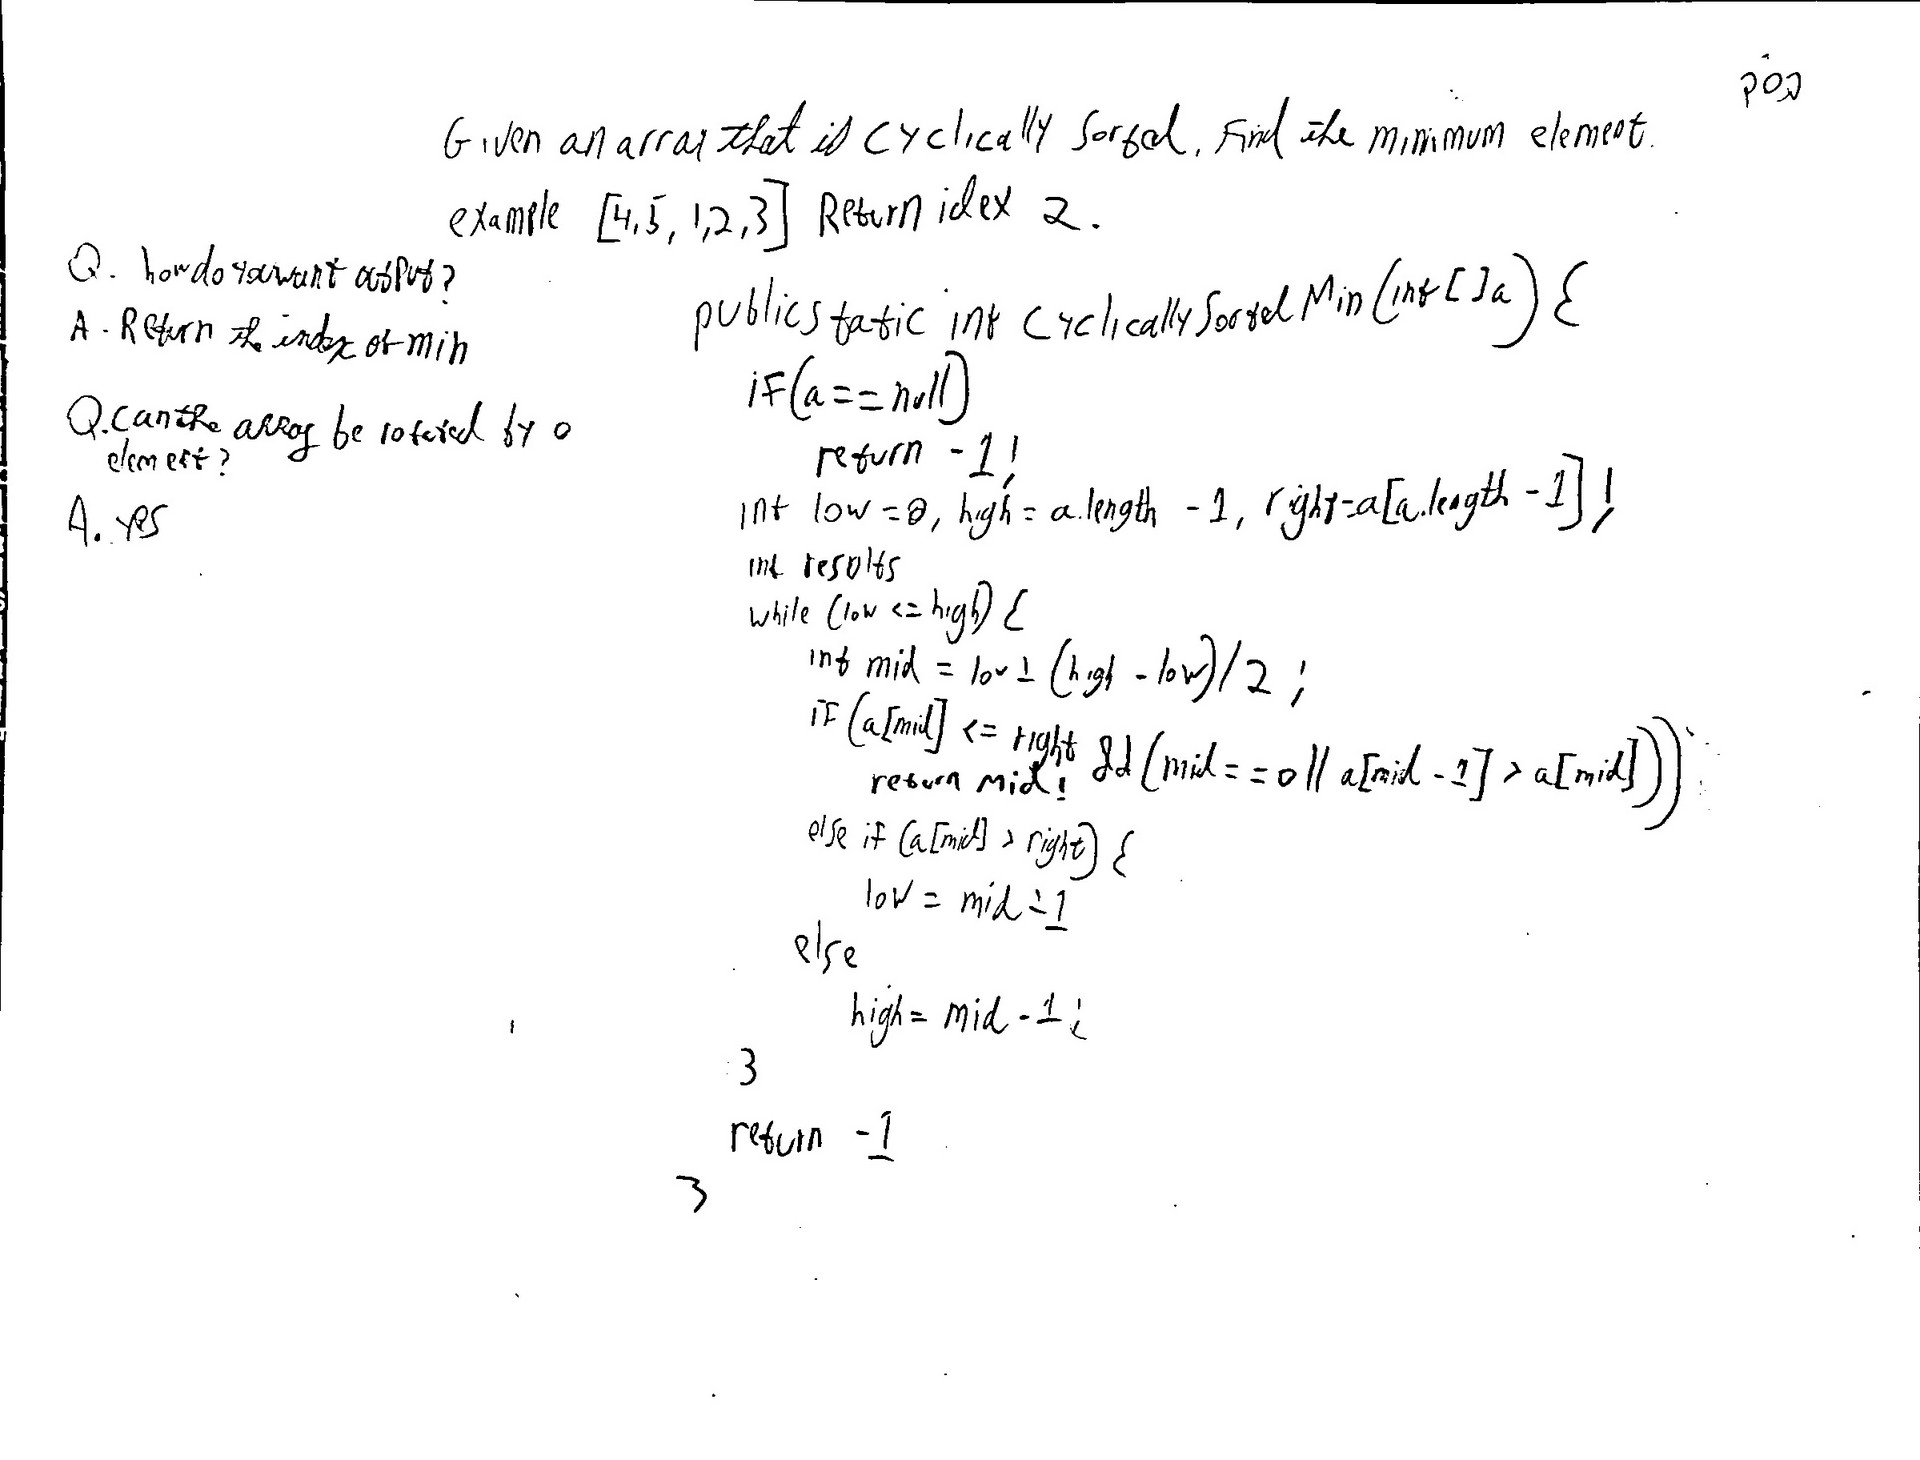 Given an array that is cyclically sorted. Find the minimum element.
example [4,5, 1,2,3] Return idex 2.
Q. how do you want output?
A. Return the index of min
Q. can the array be rotated by 0
element?
A. yes
public static int cyclicallySortedMin(int []a) {
if(a==null)
return -1;
int low =0, high = a.length -1, right=a[a.length -1];
int results
while (low <= high) {
int mid = low + (high - low)/2 ;
if (a[mid] <= right && (mid==0 || a[mid -1] > a[mid]))
return mid;
else if (a[mid] > right) {
low = mid +1
else
high = mid -1;
}
return -1
}